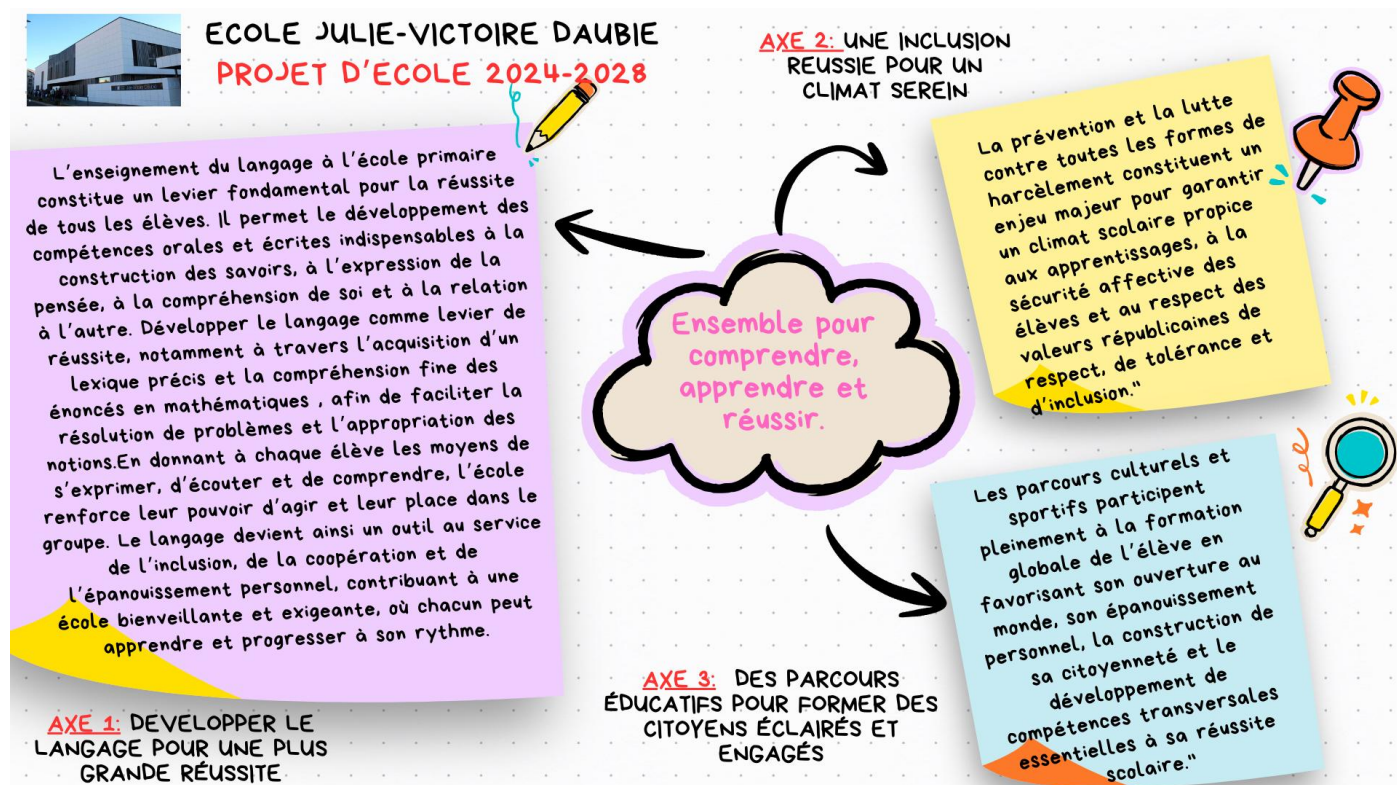 ECOLE JULIE-VICTOIRE DAUBIE
PROJET D'ECOLE 2024-2028
L'enseignement du langage à l'école primaire
constitue un levier fondamental pour la réussite
de tous les élèves. Il permet le développement des
compétences orales et écrites indispensables à la
construction des savoirs, à l'expression de la
pensée, à la compréhension de soi et à la relation
à l'autre. Développer le langage comme levier de
réussite, notamment à travers l'acquisition d'un
lexique précis et la compréhension fine des
énoncés en mathématiques , afin de faciliter la
résolution de problèmes et l'appropriation des
notions.En donnant à chaque élève les moyens de
s'exprimer, d'écouter et de comprendre, l'école
renforce leur pouvoir d'agir et leur place dans le
groupe. Le langage devient ainsi un outil au service
de l'inclusion, de la coopération et de
l'épanouissement personnel, contribuant à une
école bienveillante et exigeante, où chacun peut
apprendre et progresser à son rythme.
AXE 1: DEVELOPPER LE
LANGAGE POUR UNE PLUS
GRANDE RÉUSSITE
Ensemble pour
comprendre,
apprendre et
réussir.
AXE 2: UNE INCLUSION
REUSSIE POUR UN
CLIMAT SEREIN
La prévention et la lutte
contre toutes les formes de
harcèlement constituent un
enjeu majeur pour garantir
un climat scolaire propice
aux apprentissages, à la
sécurité affective des
élèves et au respect des
valeurs républicaines de
respect, de tolérance et
d'inclusion."
AXE 3: DES PARCOURS
ÉDUCATIFS POUR FORMER DES
CITOYENS ÉCLAIRÉS ET
ENGAGÉS
Les parcours culturels et
sportifs participent
pleinement à la formation
globale de l'élève en
favorisant son ouverture au
monde, son épanouissement
personnel, la construction de
sa citoyenneté et le
développement de
compétences transversales
essentielles à sa réussite
scolaire."